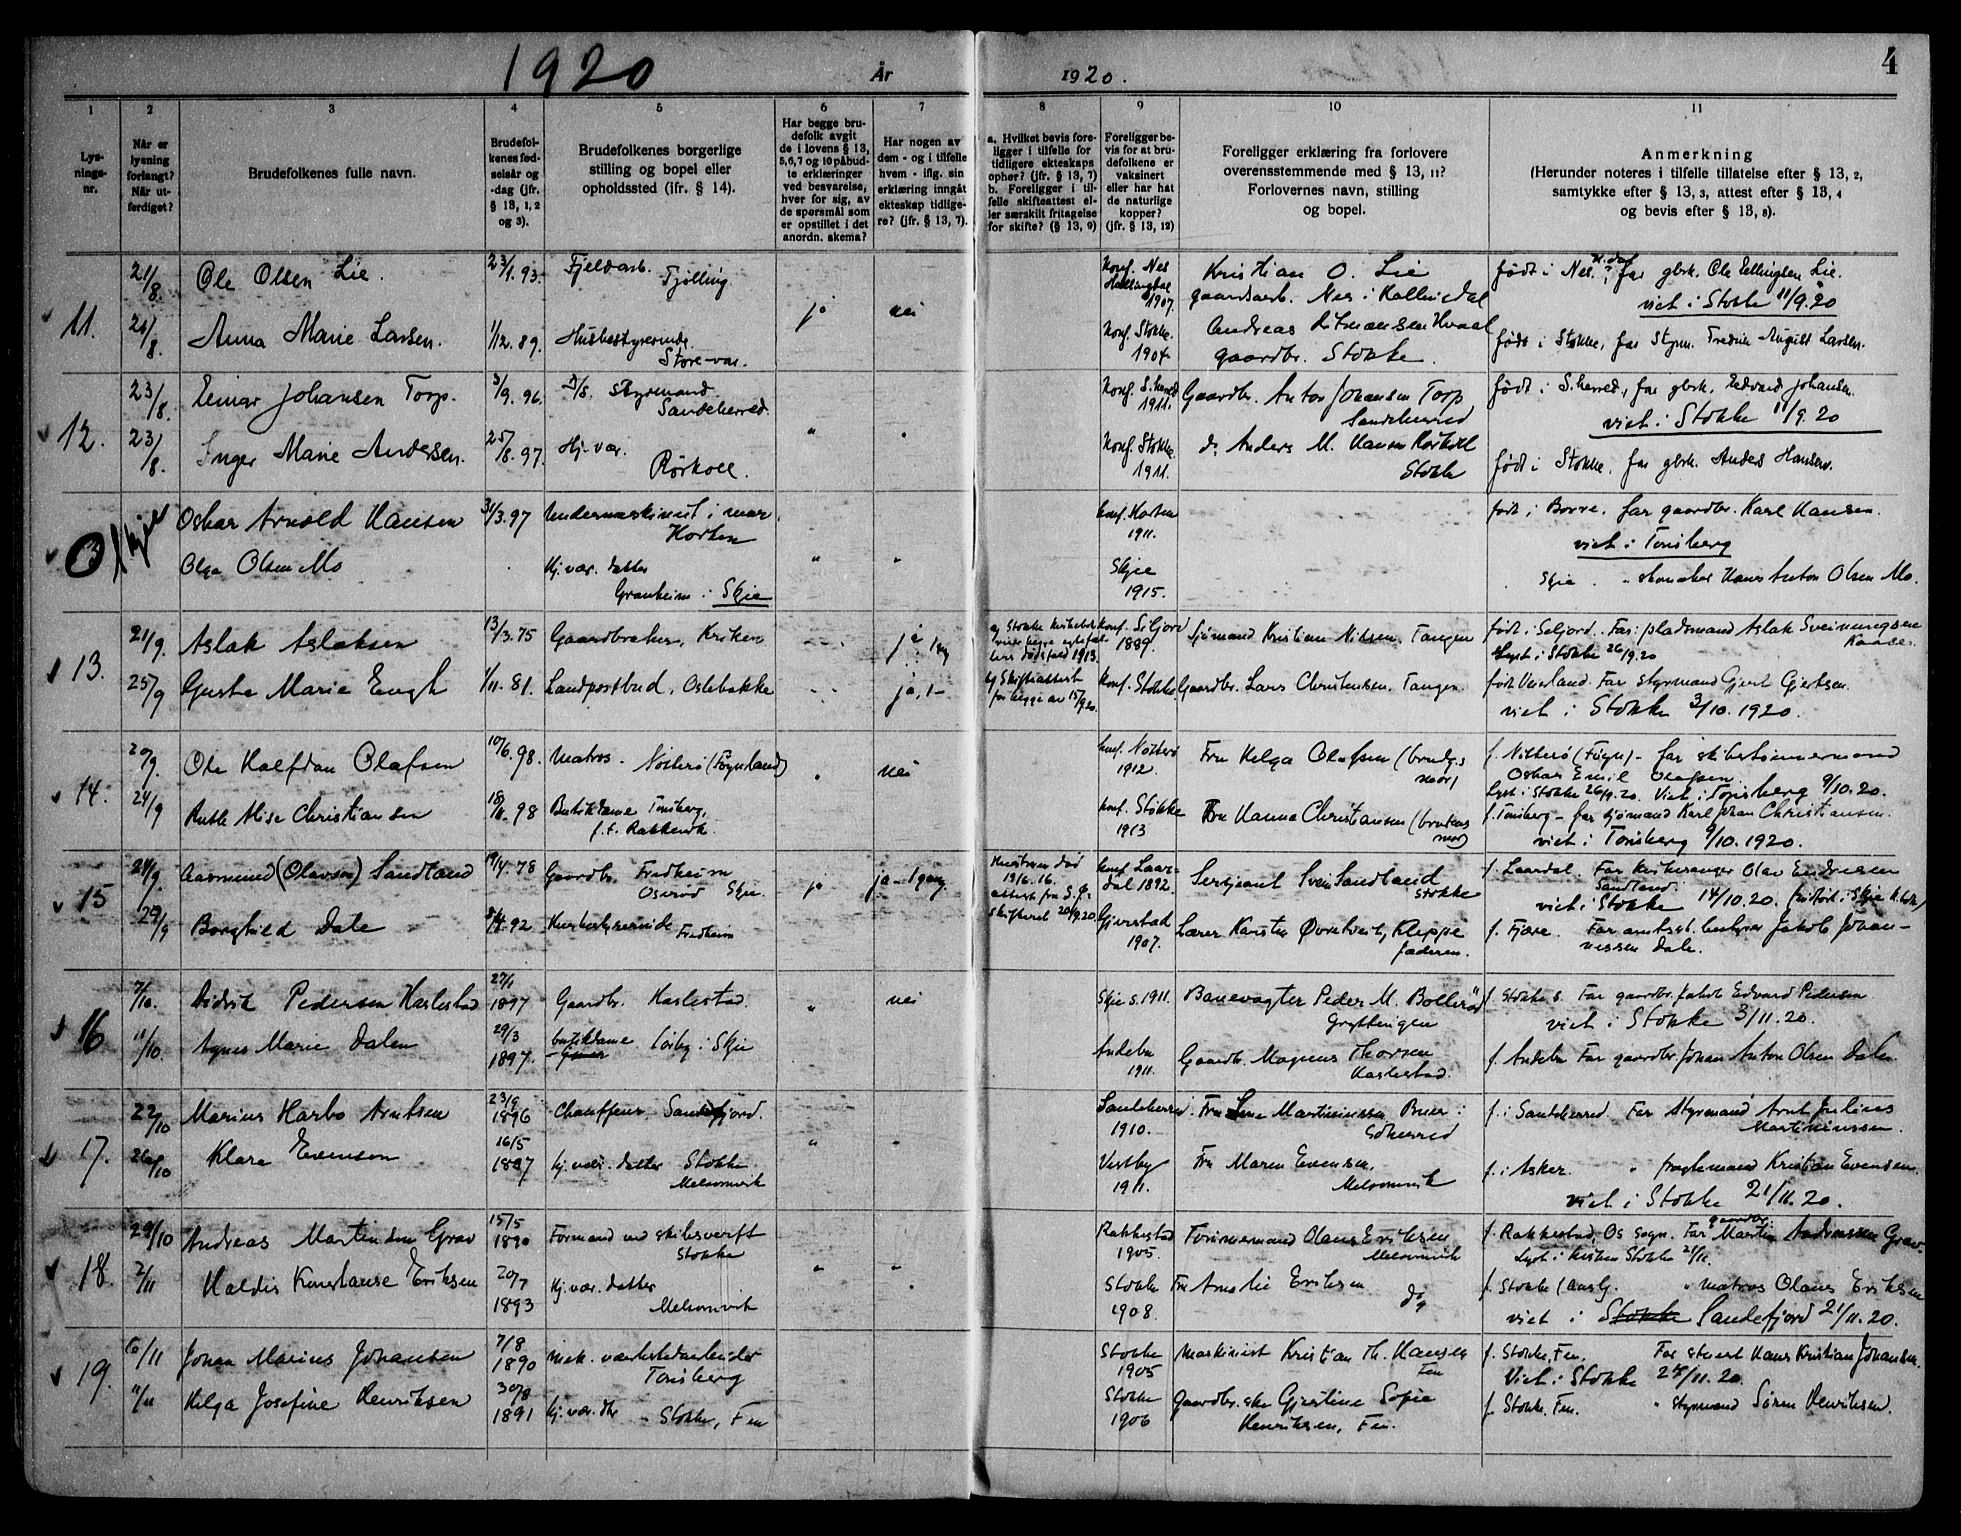 1920 År 1920. 4
1 2 3 4 5 6 7 8 9 10 11
Lys-
nings-
nr.
Når er
lysning
forlangt?
Når ut-
ferdiget?
Brudefolkenes fulle navn.
Brudefol-
kenes fød-
selsår og
-dag (jfr.
§ 13, 1, 2
og 3).
Brudefolkenes borgerlige
stilling og bopel eller
opholdssted (jfr. § 14).
Har begge bru-
defolk avgit
de i lovens § 13,
5, 6, 7 og 10 påbud-
te erklæringer
ved besvarelse,
hver for sig, av
de spørsmål som
er opstillet i det
anordn. skema?
Har nogen av
dem - og i tilfelle
hvem - iflg. sin
erklæring inngåt
ekteskap tidlige-
re? (jfr. § 13, 7).
a. Hvilket bevis fore-
ligger i tilfelle for
tidligere ekteskaps
ophør? (jfr. § 13, 7)
b. Foreligger i til-
felle skifteattest el-
ler særskilt fritagelse
for skifte? (§ 13, 9)
Foreligger be-
vis for at bru-
defolkene er
vaksinert
eller har hat
de naturlige
kopper?
(jfr. § 13, 12)
Foreligger erklæring fra forlovere
overensstemmende med § 13, 11?
Forlovernes navn, stilling
og bopel.
Anmerkning
(Herunder noteres i tilfelle tillatelse efter § 13, 2,
samtykke efter § 13, 3, attest efter § 13, 4
og bevis efter § 13, 8).
11.
21/8. Ole Olsen Lie. 23/1.93. Fjeldarb. Tjølling ja nei
Konf. Nes Hallingdal 1907. Kristian O. Lie
gaardsarb. Nes i Hallingdal
født i Nes, H.dal far gbrk. Ole Ellingsen Lie.
viet i Stokke 11/9.20
Anna Marie Larsen. 1/12.89. Husbestyrerinde Store-var.
Konf. Stokke. 1904. Andreas Hvaal
gaardbr. Stokke.
født i Stokke, far Styrm. Fredrik August Larsen.
12.
23/8. Einar Johansen Torp. 3/9.96. Styrmand Sandeherred. " "
Konf. S.herred 1911. Gaardbr. Anton Johansen Torp
Sandeherred
født i S.herred, far gbrk. Edvard Johansen.
viet i Stokke 11/9.20
23/8. Inger Marie Andersen. 25/8.97. Hj. vær. Rørkoll.
Konf. Stokke. 1911. do Anders M. Hansen Rørkoll
Stokke
født i Stokke, far gbrk. Anders Hansen.
Skjee
Oskar Arnold Hansen 31/3.97 Undermaskinist i mar. Horten
konf. Horten 1911.
født i Borre. far gaardbr. Karl Hansen.
viet i Tønsberg
Olga Olsen Mo Hj. vær. datter
Granheim i Skjee " "
Skjee 1915.
Skjee " Hans Anton Olsen Mo.
13.
21/9. Aslak Aslaksen 13/3.75 Gaardbruker, ja 1 gg
konf. Seljord 1889. Sjømand Kristian Nilsen, Tangen
født i Seljord. Far: pladsmand Aslak Sveinungsen
Lyst i Stokke 26/9.20
25/9 Gusta Marie Engh 1/11.81. Landpostbud, Oslebakke ja, 1 -
b) Skifteattest
for begge av 15/9 20.
konf. Stokke Gaardbr. Lars Christensen, Tangen.
født Veierland. Far styrmand Gjert Gjertsen.
viet i Stokke 3/10.1920.
14.
20/9. Ole Halfdan Olafsen 10/6.98. Matros. Nøtterø (Føynland) " nei
konf. Nøtterø 1912. Fru Helga Olafsen (brudg.s
mor)
f. Nøtterø (Føynl) - far skibstømmermand
Oskar Emil Olafsen.
Lyst i Stokke 26/9.20. Viet i Tønsberg 9/10.20.
24/9 Ruth Alise Christiansen 18/11.98 Butikdame Tønsberg,
konf. Stokke 1913 Fru Hanna Christiansen (brudens
mor)
f. Tønsberg - far sjømand Karl Johan Christiansen.
viet i Tønsberg 9/10.1920.
15
24/9. Aasmund (Olavson) Sandland 19/4.78 Gaardbr. Fredheim
Oserød Skjee ja ja - 1 gang
Hustruen død
attest fra
skifteret 20/9.20.
konf. Laardal 1892. Sersjeant Svein Sandland
Stokke
f. Laardal. Far kirkesanger Olav Eindresen
Sandland.
viet i Stokke 14/10.20.
29/9 Borghild Dale 92 Husbestyrerinde Fredheim
Gjerstad 1907. Lærer Karsten Kleppe
Jæderen.
f. Fjære. Far Jakob Johan-
nessen Dale.
16
7/10. Didrik Pedersen Haslestad 27/1 1897 Gaardbr. Haslestad. " nei
Skje s. 1911. Banevagter Peder M. Bollerød
Gryttingen
f. Stokke s. Far gaardbr. Jakob Edvard Pedersen
viet i Stokke 3/11.20.
11/10 Agnes Marie Dalen 29/3 1897. butikdame i Skje
Andebu 1911. Gaardbr. Magnus Thorsen
Haslestad.
f. Andebu Far gaardbr. Johan Anton Olsen Dalen.
17.
22/10 Marius Harbo Arntsen 23/9 1896 Chauffeur Sandefjord. " "
Sandeherred 1910. Fru Lene Martiniussen
f. i Sandeherred. Far Styrmand Arnt Julius
Martiniussen.
26/10 Klara Evensen 16/5 1897 Hj. vær. datter Stokke
Melsomvik
Vestby 1911. Fru Maren Evensen,
Melsomvik
f. i Asker. " Kristian Evensen.
viet i Stokke 21/11.20.
18.
29/10 Andreas Martinsen Grav 15/5 1890 Formand ved skibsverft
Stokke " "
Rakkestad 1905. Tømmermand Olaus Eriksen
Melsomvik
f. Rakkestad, Os sogn. Far gaardbr. Martin Andreassen Grav.
Lyst i kirken Stokke
2/11 Haldis Konstanse Eriksen 20/7 1893 Hj. vær. datter
Melsomvik
Stokke 1908. Fru Amalie Eriksen do
f. Stokke " matros Olaus Eriksen
viet i Stokke Sandefjord 21/11.20.
19.
6/11 Johan Marius Johansen 7/8 1890 Mek. verkstedarbeider
Tønsberg
Stokke 1905 Maskinist Kristian Th. Hansen
Fen
f. Stokke, Fen. Far stuert Hans Kristian Johansen.
Viet i Stokke 28/11.20.
11/11 Helga Josefine Henriksen 30/8 1891 Hj. vær. dtr - Stokke, Fen
Stokke 1906 Gaardbr.ske Gjertine Sofie
Henriksen, Fen.
f. Stokke, Fen. " styrmand Søren Henriksen.